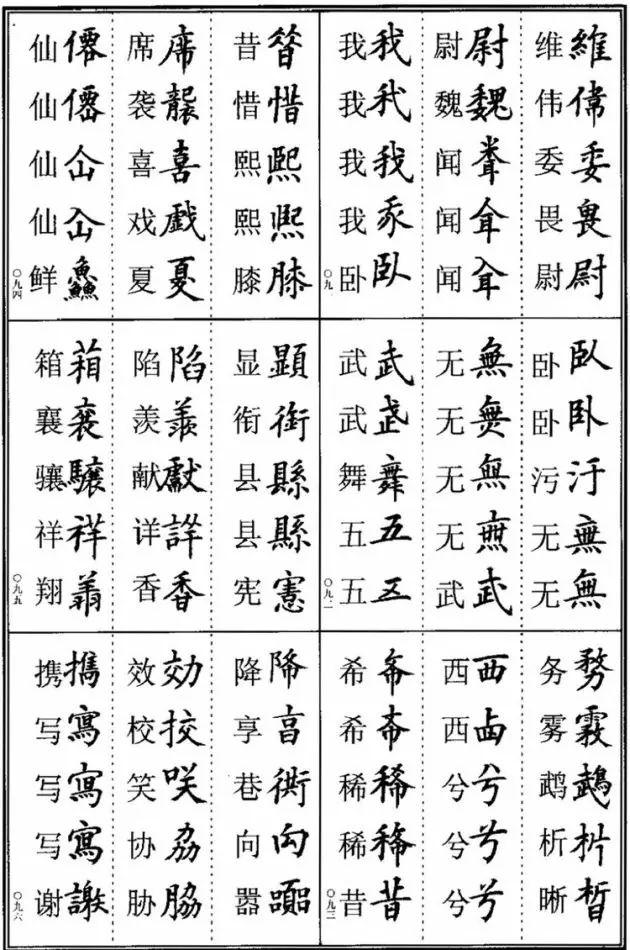 维維 伟偉 委委 畏畏 尉尉
尉尉 魏魏 闻 闻 闻
我我 我我 我我 我 卧臥
〇九一
卧臥 卧卧 污汙 无無 无無
无無 无無 无無 无無 武武
武武 武 舞舞 五五 五五
〇九二
务務 雾 鹉鵡 析析 晰晳
西西 西卥 兮兮 兮兮 兮兮
希希 希 稀稀 稀 昔昔
〇九三
昔 惜惜 熙熙 熙熙 膝膝
席席 袭襲 喜喜 戏戲 夏夏
仙僊 仙僊 仙仚 仙仚 鲜鱻
〇九四
显顯 衔銜 县縣 县縣 宪憲
陷陷 羡羨 献獻 详詳 香香
箱箱 襄襄 骧驤 祥祥 翔
〇九五
降降 享亯 巷衖 向向 嚣嚻
效効 校挍 笑咲 协劦 胁脇
携攜 写寫 写寫 写寫 谢謝
〇九六